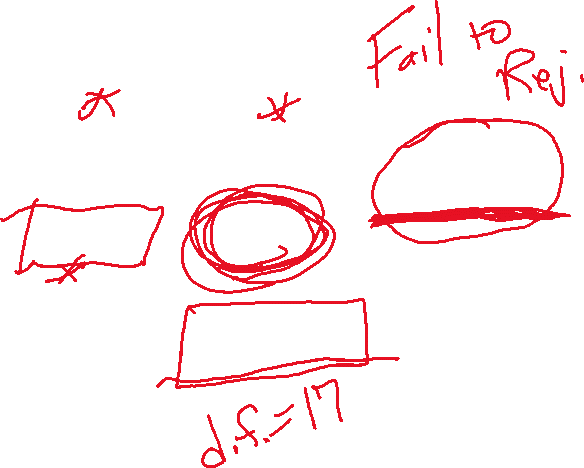 Fail to
Rej.
* *
*
d.f.=17